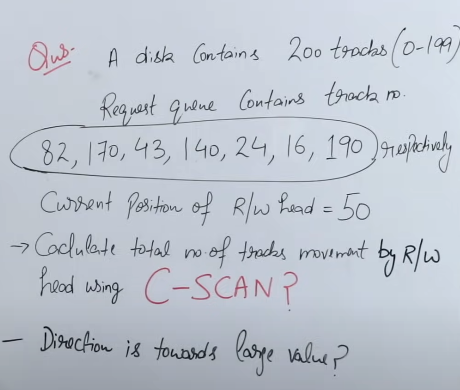 Qus. A disk Contains 200 tracks (0-199)
Request queue Contains track no.
82, 170, 43, 140, 24, 16, 190 respectively
Current Position of R/W head = 50
→ Caclulate total no. of tracks movement by R/W
head using C-SCAN?
- Direction is towards large value?